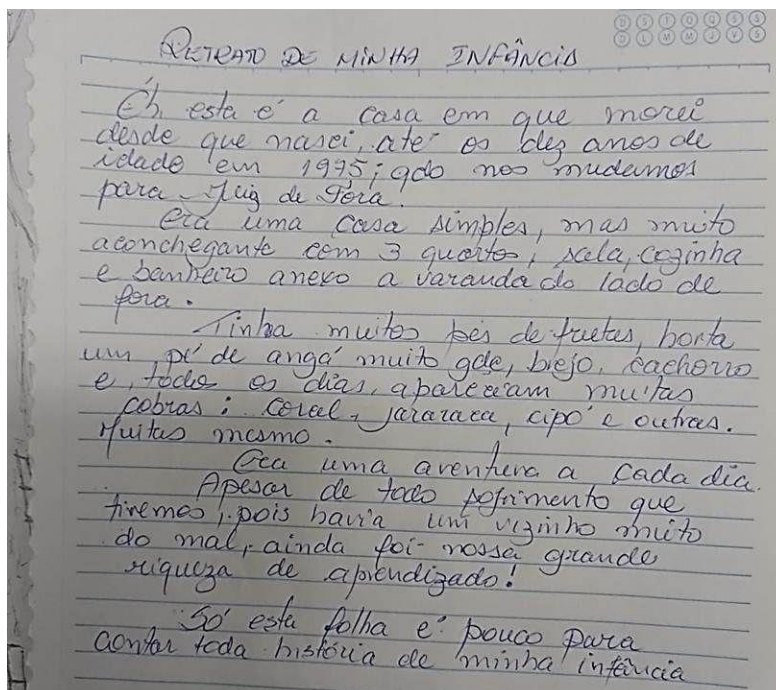 D S T Q Q S S
D L M M J V S
RETRATO DE MINHA INFÂNCIA
Eh, esta é a casa em que morei
desde que nasci, até os dez anos de
idade em 1975; qdo nos mudamos
para Juiz de Fora.
Era uma casa simples, mas muito
aconchegante com 3 quartos, sala, cozinha
e banheiro anexo a varanda do lado de
fora.
Tinha muitos pés de frutas, horta
um pé de angá muito gde, brejo, cachorro
e, todos os dias, apareciam muitas
cobras: coral, jararaca, cipó e outras.
Muitas mesmo.
Era uma aventura a cada dia.
Apesar de todo sofrimento que
tivemos, pois havia um vizinho muito
do mal, ainda foi nossa grande
riqueza de aprendizado!
Só esta folha é pouco para
contar toda história de minha infância